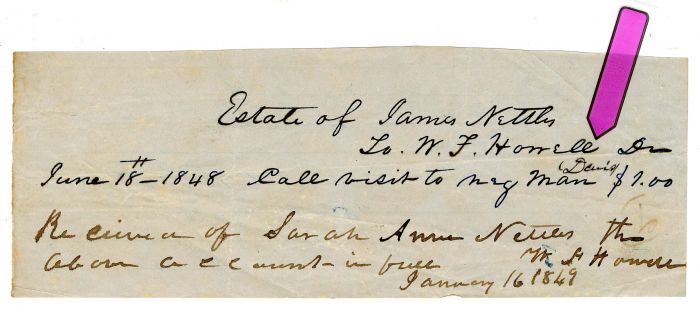 Estate of James Nettles
To. W. F. Howell Dr
June 18th - 1848 Call visit to neg man (David) $1.00
Received of Sarah Anne Nettles the
above account in full W F Howell
January 16 1849